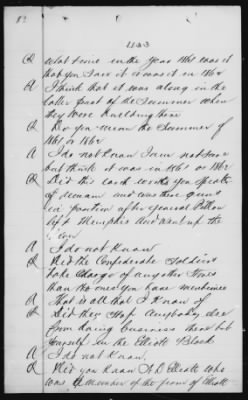 1143
Q What time in the Year 1861 was it
that you saw it or was it in 1862
A I think that it was along in the
latter part of the Summer when
they were building there
Q Do you mean the Summer of
1861 or 1862
A I do not Know I am not sure
but think it was in 1861 or 1862
Q Did this earth works you speak
of remain and was these guns
in position after General Pillow
left Memphis and went up the
river
A I do not Know
Q Did the Confederate Soldiers
take charge of any other Stores
than the ones you have mentioned
A That is all that I Know of
Q Did they stop Anybody else
from doing business there but
yourself in the Elliott Block
A I do not Know.
Q Did you Know A D Elliott who
was a Member of the firm of Elliott